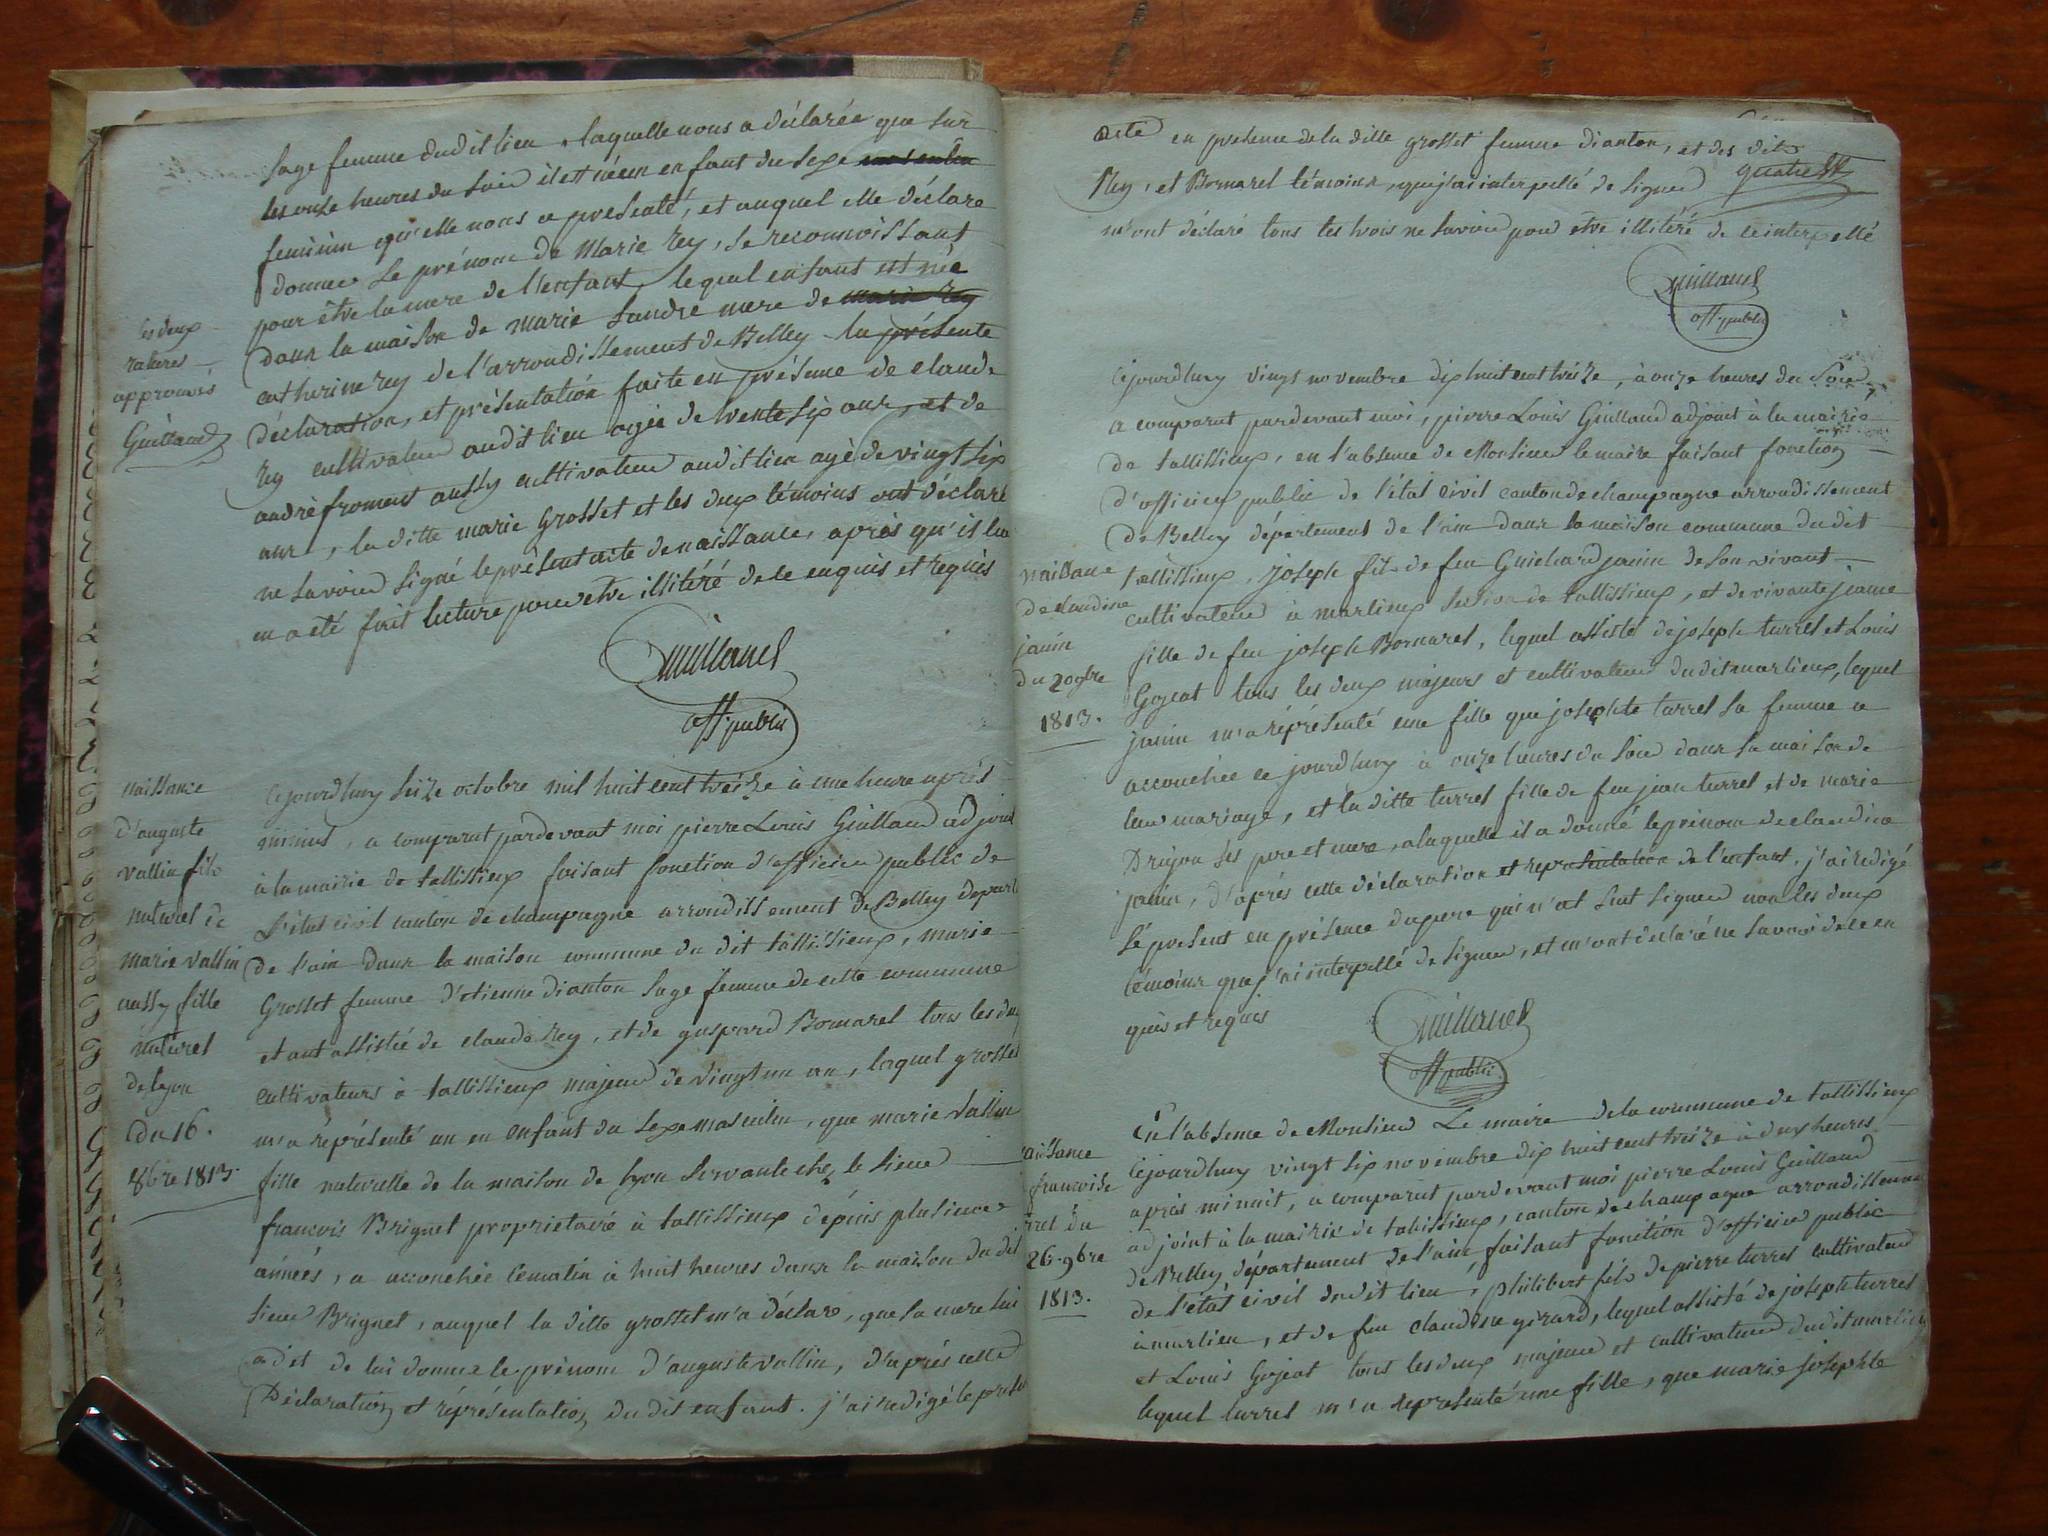 sage femme dudit lieu, laquelle nous a déclarée que sur
les onze heures du soir il est née un enfant du sexe masculin
feminin qu'elle nous a presenté, et auquel elle déclare
donner le prénom de Marie Rey, se reconnoissant
pour être la mere de l'enfant, lequel enfant est née
dans la maison de marie Landre mere de marie Rey
catherine rey de l'arrondissement de Belley la présente
déclaration, et présentation faite en présence de claude
Rey cultivateur audit lieu agée de trente six ans, et de
andré froment aussy cultivateur audit lieu agè de vingt six
ans, la ditte marie Grosset et les deux témoins ont déclaré
ne savoir signé le présent acte de naissance, après qu'il leur
en a eté fait lecture pour etre illitéré de ce enquis et requis
Guilland
off. public
les deux
ratures
approuvés
Guilland
naissance
d'auguste
vallin fils
naturel de
marie vallin
aussy fille
naturel
de lyon
du 16.
8bre 1813.
Cejourdhuy seize octobre mil huit cent treize à une heure après
minuit, a comparut pardevant moi pierre Louis Guilland adjoint
à la mairie de tallissieux faisant fonction d'officier public de
l'état civil canton de champagne arrondissement de Belley depart
de l'ain dans la maison commune du dit tallissieux, marie
Grosset femme d'etienne dianton sage femme de cette commune
etant assistée de claude Rey, et de gaspard Bornarel tous les deux
cultivateurs à tallissieux majeur de vingt un an, laquel grosset
m'a réprésenté un en enfant du sexe masculin, que marie vallin
fille naturelle de la maison de lyon servante chez le sieur
francois Brignet proprietaire à tallissieux depuis plusieurs
années, a accouchée ce matin à huit heures dans la maison du dit
sieur Brignet, auquel la ditte grosset m'a déclaré, que sa mere lui
a dit de lui donner le prénom d'auguste vallin, d'après cette
Déclaration et réprésentation du dit enfant. j'ai redigé le présent
acte en presence de la ditte grosset femme dianton, et des dits
Rey, et Bornarel témoins, que j'ai interpellé de signer
m'ont déclaré tous les trois ne savoir pour etre illitéré de ce interpellé
Guilland
off. public
naissance
de claudine
janin
du 20 9bre
1813.
Cejourdhuy vingt novembre dix huit cent treize, à onze heures du soir
a comparut pardevant moi, pierre Louis Guilland adjoint à la mairie
de tallissieux, en l'absence de Monsieur le maire faisant fonction
d'officier public de l'état civil canton de champagne arrondissement
de Belley département de l'ain dans la maison commune du dit
tallissieux, joseph fils de feu Guichard janin de son vivant
cultivateur à marlieux section de tallissieux, et de vivante jeanne
fille de feu joseph Bornarel, lequel assisté de joseph turrel et Louis
Gojeat tous les deux majeurs et cultivateur du dit marlieux, lequel
janin m'a réprésenté une fille que josephte turrel sa femme a
accouchée ce jourdhuy à onze heures du soir dans la maison de
leur mariage, et la ditte turrel fille de feu jean turrel et de marie
Drujon ses pere et mere, alaquelle il a donné le prénom de claudine
janin, d'après cette déclaration et représentation de l'enfant, j'ai redigé
lé present en présence du pere qui n'at seut signer non les deux
témoins que j'ai interpellé de signer, et m'ont déclaré ne savoir de ce en
quis et requis
Guilland
off. public
naissance
francoise
turrel du
26. 9bre
1813.
En l'absence de Monsieur Le maire de la commune de tallissieux
Cejourdhuy vingt six novembre dix huit cent treize à deux heures
après minuit, a comparut pardevant moi pierre Louis Guilland
adjoint à la mairie de tallissieux, canton de champagne arrondissement
de Belley, département de l'ain, faisant fonction d'officier public
de l'état civil dudit lieu, philibert fils de pierre turrel cultivateur
à marlieu, et de feu claudine girard, lequel assisté de joseph turrel
et Louis Gojeat tous les deux majeur et cultivateur dudit marlieu
lequel turrel m'a représenté une fille, que marie josephte